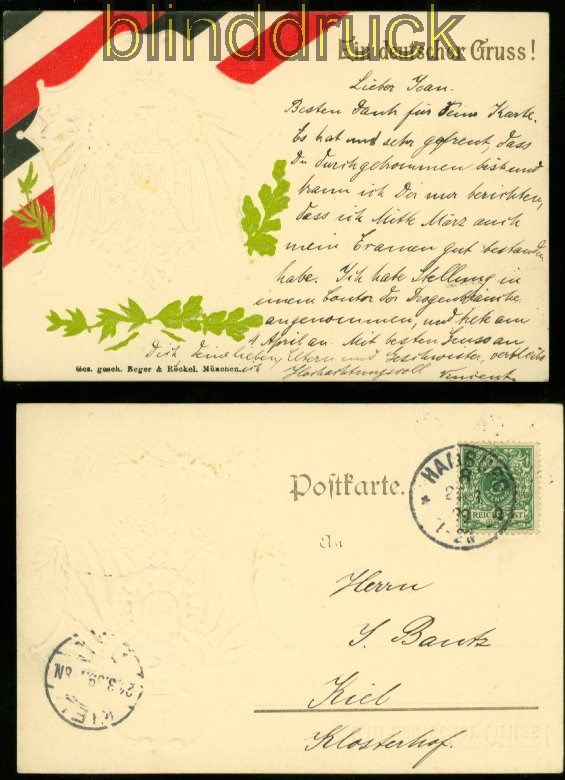 blinddruck
Ein deutscher Gruss!
Lieber Jean.
Besten Dank für Deine Karte.
Es hat mich sehr gefreut, dass
Du durchgekommen bist und
kann ich Dir nur berichten,
dass ich Mitte März auch
mein Examen gut bestanden
habe. Ich habe Stellung in
einem Contor der Drogenbranche
angenommen, und trete am
1. April an. Mit besten Gruss an
Dich, Deine lieben Eltern und Geschwister, verbleibe
ich Hochachtungsvoll Vincent
Ges. gesch. Beger & Röckel. München.
HAMBURG
Postkarte.
REICHSPOST
An
Herrn
J. Bantz
Kiel
KIEL
Klosterhof.